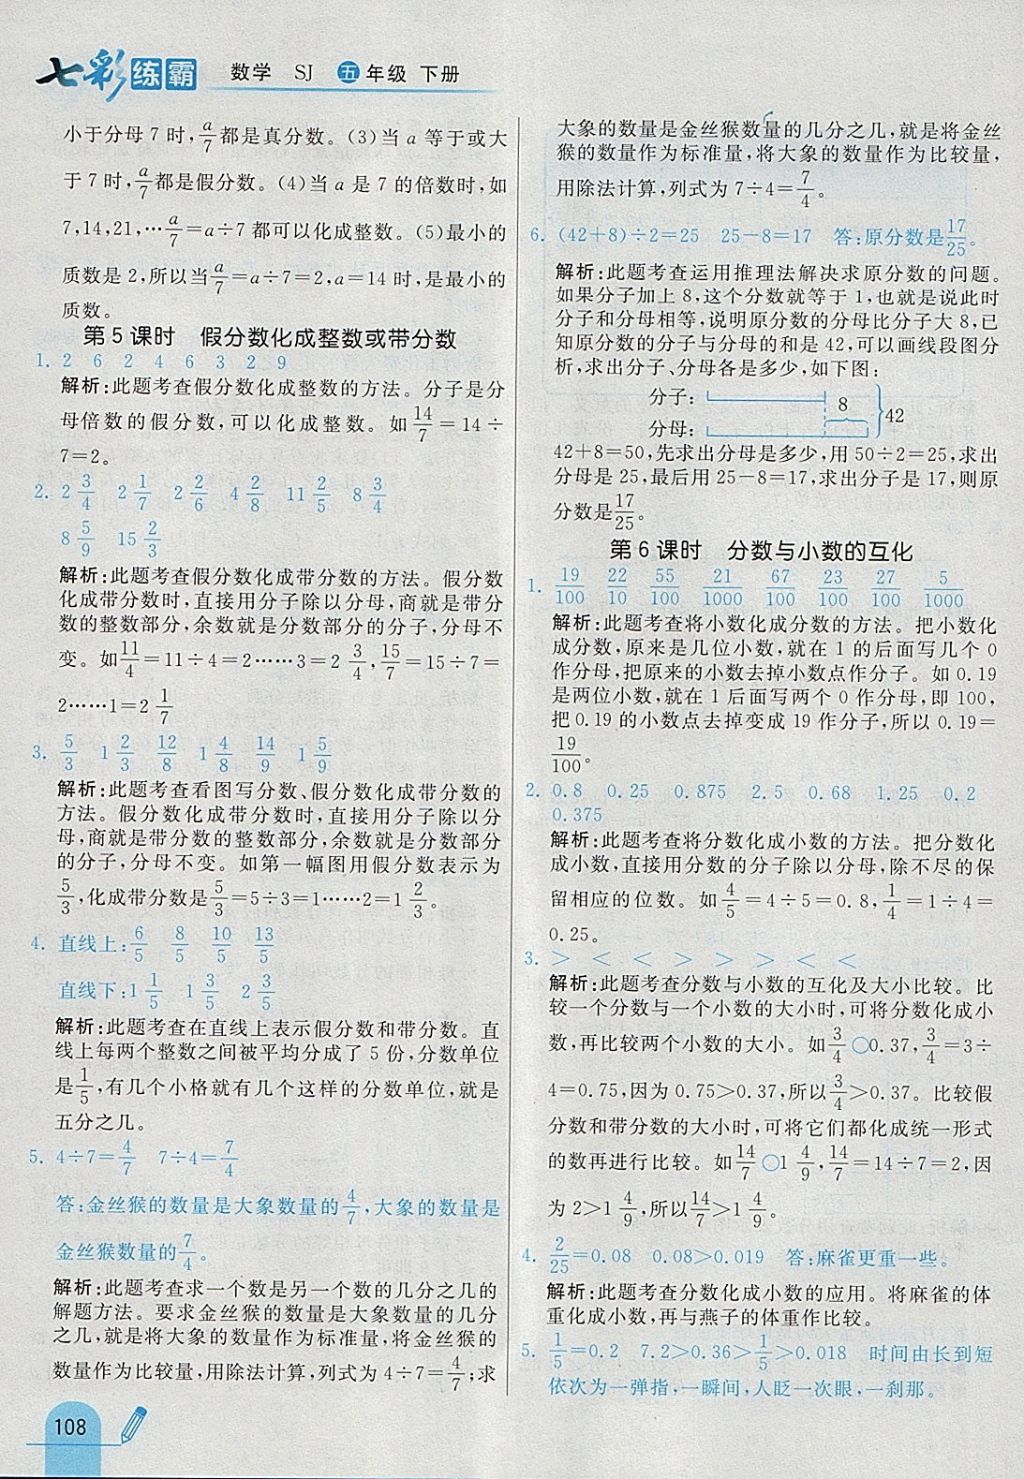 七彩练霸 数学 SJ 五年级 下册
小于分母 7 时,a/7都是真分数。(3)当 a 等于或大
于 7 时,a/7都是假分数。(4)当 a 是 7 的倍数时,如
7,14,21,…a/7=a÷7 都可以化成整数。(5)最小的
质数是 2,所以当a/7=a÷7=2,a=14 时,是最小的
质数。
第 5 课时 假分数化成整数或带分数
1. 2 6 2 4 6 3 2 9
解析:此题考查假分数化成整数的方法。分子是分
母倍数的假分数,可以化成整数。如14/7=14÷
7=2。
2. 2 3/4 2 1/7 2 2/6 4 2/8 11 2/5 8 3/4
8 5/9 15 2/3
解析:此题考查假分数化成带分数的方法。假分数
化成带分数时,直接用分子除以分母,商就是带分
数的整数部分,余数就是分数部分的分子,分母不
变。如11/4=11÷4=2……3=2 3/4,15/7=15÷7=
2……1=2 1/7
3. 5/3 1 2/3 12/8 1 4/8 14/9 1 5/9
解析:此题考查看图写分数、假分数化成带分数的
方法。假分数化成带分数时,直接用分子除以分
母,商就是带分数的整数部分,余数就是分数部分
的分子,分母不变。如第一幅图用假分数表示为
5/3,化成带分数是5/3=5÷3=1……2=1 2/3。
4. 直线上:6/5 8/5 10/5 13/5
直线下:1 1/5 1 3/5 2 3/5
解析:此题考查在直线上表示假分数和带分数。直
线上每两个整数之间被平均分成了 5 份,分数单位
是1/5,有几个小格就有几个这样的分数单位,就是
五分之几。
5. 4÷7=4/7 7÷4=7/4
答:金丝猴的数量是大象数量的4/7,大象的数量是
金丝猴数量的7/4。
解析:此题考查求一个数是另一个数的几分之几的
解题方法。要求金丝猴的数量是大象数量的几分
之几,就是将大象的数量作为标准量,将金丝猴的
数量作为比较量,用除法计算,列式为 4÷7=4/7;求
108
大象的数量是金丝猴数量的几分之几,就是将金丝
猴的数量作为标准量,将大象的数量作为比较量,
用除法计算,列式为 7÷4=7/4。
6. (42+8)÷2=25 25-8=17 答:原分数是17/25。
解析:此题考查运用推理法解决求原分数的问题。
如果分子加上 8,这个分数就等于 1,也就是说此时
分子和分母相等,说明原分数的分母比分子大 8,已
知原分数的分子与分母的和是 42,可以画线段图分
析,求出分子、分母各是多少,如下图:
分子:
8
42
分母:
42+8=50,先求出分母是多少,用 50÷2=25,求出
分母是 25,最后用 25-8=17,求出分子是 17,则原
分数是17/25。
第 6 课时 分数与小数的互化
1. 19/100 22/10 55/100 21/1000 67/100 23/100 27/100 5/1000
解析:此题考查将小数化成分数的方法。把小数化
成分数,原来是几位小数,就在 1 的后面写几个 0
作分母,把原来的小数去掉小数点作分子。如 0.19
是两位小数,就在 1 后面写两个 0 作分母,即 100,
把 0.19 的小数点去掉变成 19 作分子,所以 0.19=
19/100。
2. 0.8 0.25 0.875 2.5 0.68 1.25 0.2
0.375
解析:此题考查将分数化成小数的方法。把分数化
成小数,直接用分数的分子除以分母,除不尽的保
留相应的位数。如 4/5=4÷5=0.8,1/4=1÷4=
0.25。
3. > < < > > > < <
解析:此题考查分数与小数的互化及大小比较。比
较一个分数与一个小数的大小时,可将分数化成小
数,再比较两个小数的大小。如 3/4○0.37,3/4=3÷
4=0.75,因为 0.75>0.37,所以3/4>0.37。比较假
分数和带分数的大小时,可将它们都化成统一形式
的数再进行比较。如14/7○1 4/9,14/7=14÷7=2,因
为 2>1 4/9,所以14/7>1 4/9。
4. 2/25=0.08 0.08>0.019 答:麻雀更重一些。
解析:此题考查分数化成小数的应用。将麻雀的体
重化成小数,再与燕子的体重作比较。
5. 1/5=0.2 7.2>0.36>1/5>0.018 时间由长到短
依次为一弹指,一瞬间,人眨一次眼,一刹那。